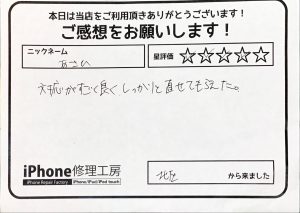 本日は当店をご利用頂きありがとうございます!
ご感想をお願いします!
ニックネーム
あさひ
星評価 ☆☆☆☆☆
対応がすごく良くしっかりと直せてもらえた。
iPhone修理工房
iPhone Repair Factory iPhone/iPad/iPod touch
北区 から来ました